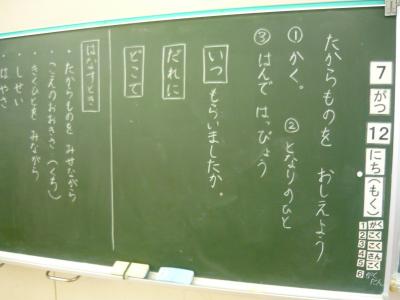 7
がつ
12
にち
(もく)
1 がく
2 こく
3 こく
4 さん
5 こく
6 がくたん
たからものを おしえよう
① かく。 ② となりのひと
③ はんで はっぴょう
いつ もらいましたか。
だれに
どこで
はなすとき
・たからものを みせながら
・こえのおおきさ(くち)
・きくひとを みながら
しせい
・はやさ